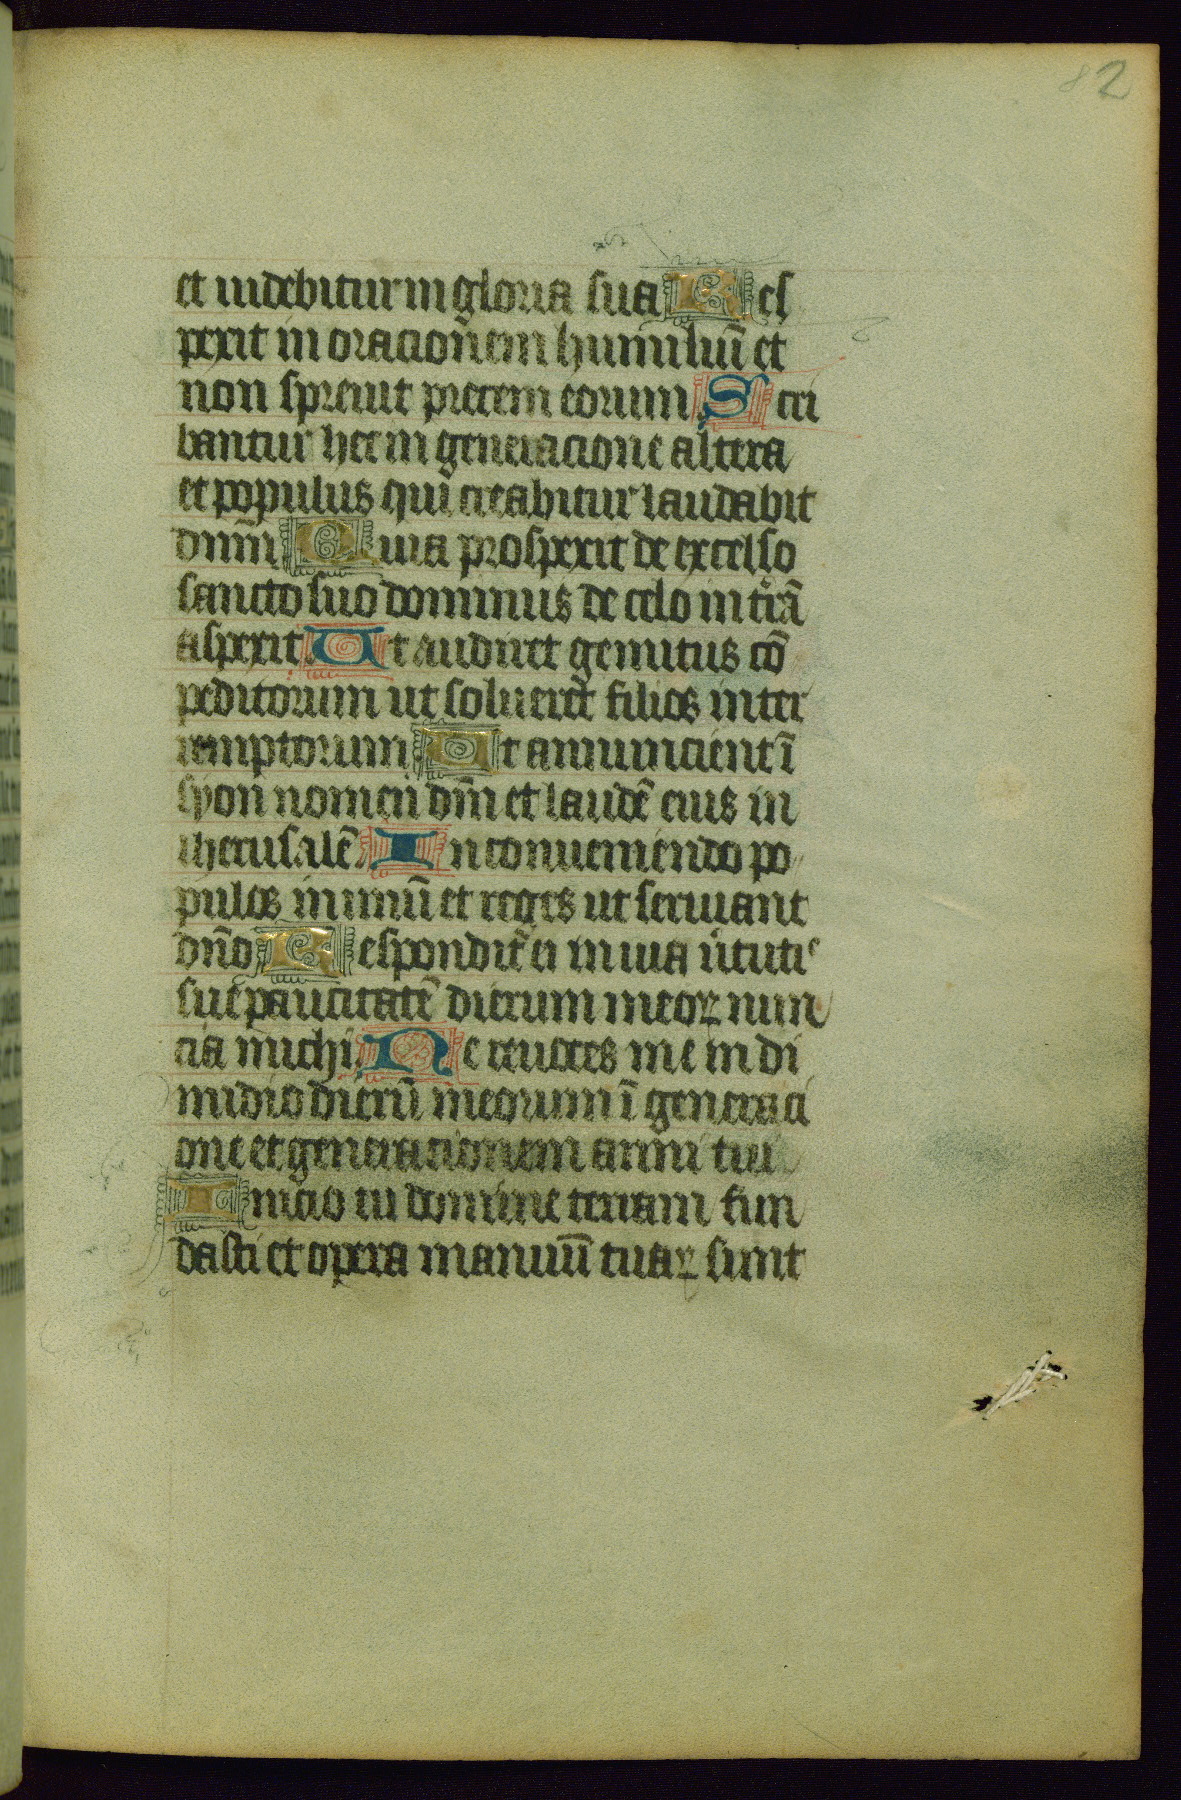 82
et uidebitur in gloria sua Res
pexit in oracionem humiliū et
non spreuit precem eorum Scri
bantur hec in generacione altera
et populus qui creabitur laudabit
dnm̄ Quia prospexit de excelso
sancto suo dominus de celo in tr̄ā
aspexit Ut audiret gemitus cō
peditorum ut solueret filios inter
remptorum Ut annuncient ī
syon nomen dn̄i et laudē eius in
iherusalē In conueniendo po
pulos in unū et reges ut seruiant
dn̄o Respondit ei in uia uͥtutiˢ
sue paucitatē dierum meoꝝ nun
cia michi Ne reuoces me in di
midio dierū meorum ī generaci
one et generacionem anni tui
Inicio tu domine terram fun
dasti et opera manuū tuaꝝ sunt